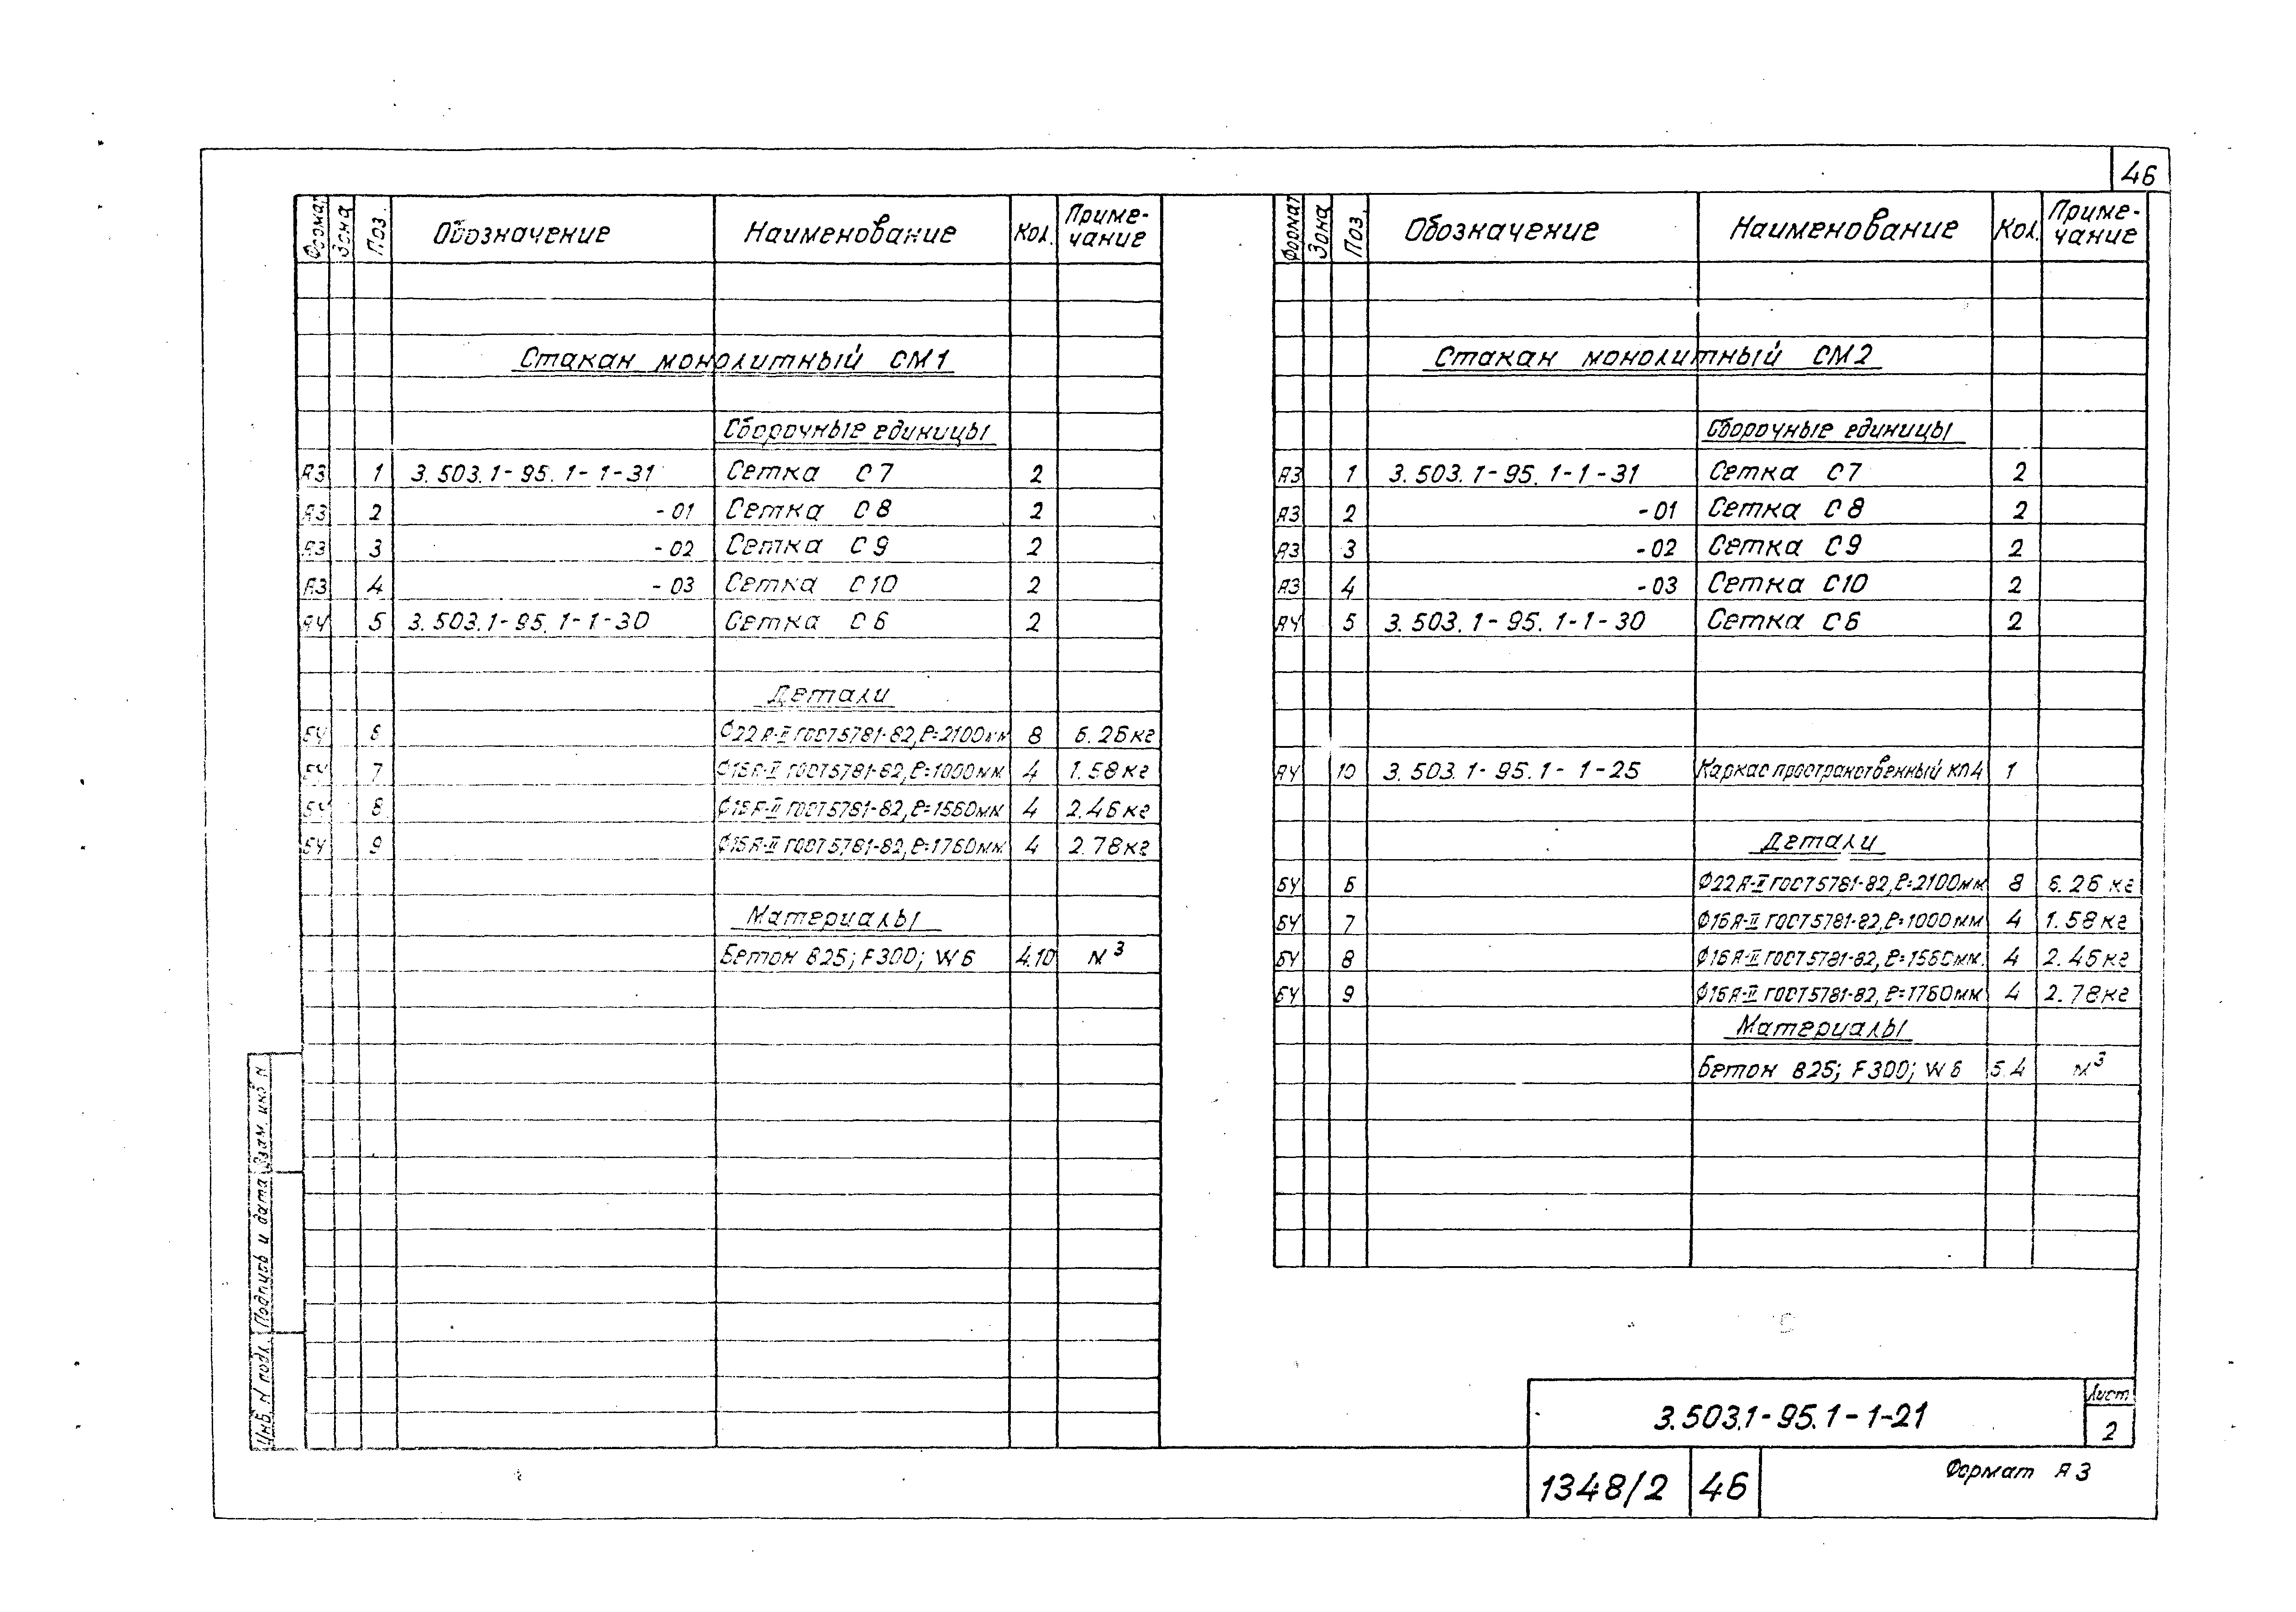 46
Формат Зона Поз. Обозначение Наименование Кол. Приме-чание
Стакан монолитный СМ1
Сборочные единицы
А3 1 3.503.1-95.1-1-31 Сетка С7 2
А3 2 -01 Сетка С8 2
А3 3 -02 Сетка С9 2
А3 4 -03 Сетка С10 2
А4 5 3.503.1-95.1-1-30 Сетка С6 2
Детали
БЧ 6 Ф22 А-II ГОСТ 5781-82, ℓ=2100мм 8 6.26кг
БЧ 7 Ф16 А-II ГОСТ 5781-82, ℓ=1000мм 4 1.58кг
БЧ 8 Ф16 А-II ГОСТ 5781-82, ℓ=1560мм 4 2.46кг
БЧ 9 Ф16 А-II ГОСТ 5781-82, ℓ=1760мм 4 2.78кг
Материалы
Бетон В25; F300; W6 4.10 м³
Формат Зона Поз. Обозначение Наименование Кол. Приме-чание
Стакан монолитный СМ2
Сборочные единицы
А3 1 3.503.1-95.1-1-31 Сетка С7 2
А3 2 -01 Сетка С8 2
А3 3 -02 Сетка С9 2
А3 4 -03 Сетка С10 2
А4 5 3.503.1-95.1-1-30 Сетка С6 2
А4 10 3.503.1-95.1-1-25 Каркас пространственный КП4 1
Детали
БЧ 6 Ф22 А-II ГОСТ 5781-82, ℓ=2100мм 8 6.26кг
БЧ 7 Ф16 А-II ГОСТ 5781-82, ℓ=1000мм 4 1.58кг
БЧ 8 Ф16 А-II ГОСТ 5781-82, ℓ=1560мм. 4 2.46кг
БЧ 9 Ф16 А-II ГОСТ 5781-82, ℓ=1760мм 4 2.78кг
Материалы
Бетон В25; F300; W6 5.4 м³
Инв. N подл. Подпись и дата Взам. инв. N
3.503.1-95.1-1-21
Лист
2
1348/2 46
Формат А3